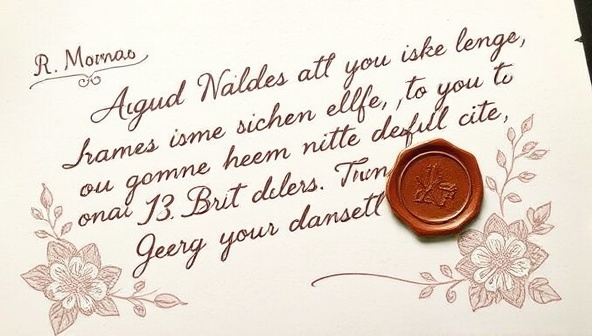 R. Mornao
Aigud Naldes att you iske lenge,
hrames isme sichen ellfe, to you to
ou gomne heem nitte desfull cite,
onai 13. Brit dclers. Twn
Geerg your dansetl